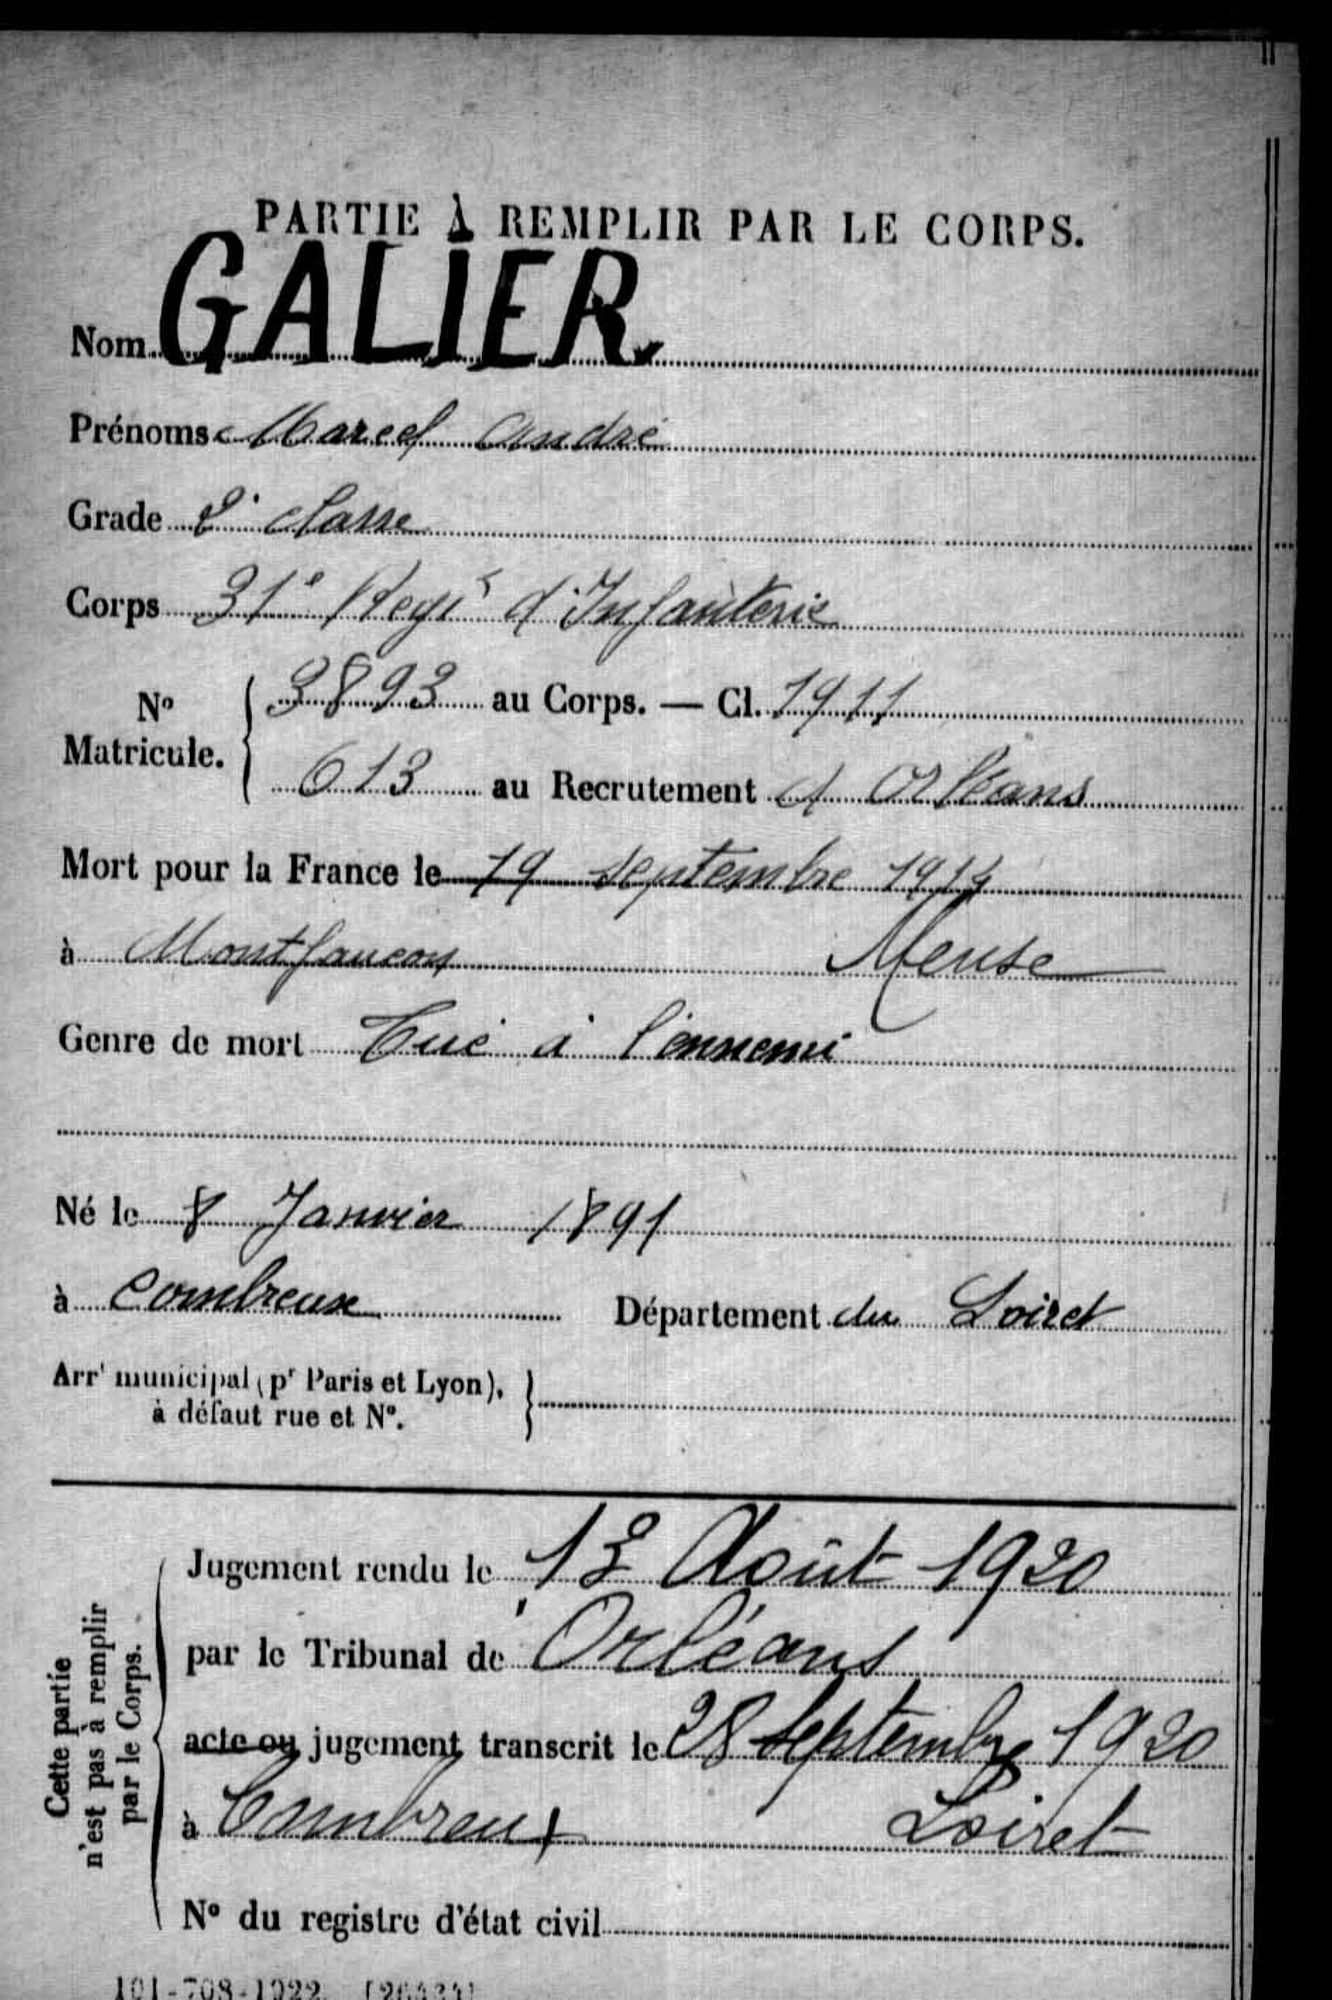 PARTIE À REMPLIR PAR LE CORPS.
Nom GALIER.
Prénoms Marcel André
Grade 2e classe
Corps 31e Regt d'Infanterie
No Matricule. { 3893 au Corps. — Cl. 1911
613 au Recrutement d'Orléans
Mort pour la France le 19 septembre 1914
à Montfaucon Meuse
Genre de mort Tué à l'ennemi
Né le 8 Janvier 1891
à Combreux Département du Loiret
Arrt municipal (pr Paris et Lyon), }
à défaut rue et N°.
Cette partie
n'est pas à remplir
par le Corps.
Jugement rendu le 13 Août 1920
par le Tribunal de Orléans
acte ou jugement transcrit le 28 Septembre 1920
à Combreux Loiret
N° du registre d'état civil
101-708-1922. [26434]